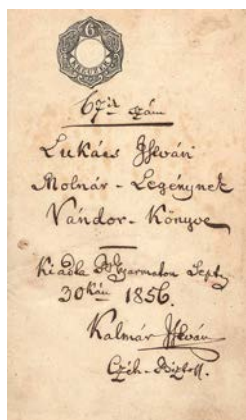 6
67ik szám
Lukács István
Molnár - Legénynek
Vándor - Könyve
Kiadta B Gyarmaton Sept.
30kán 1856.
Kalmár István
Czéh - Biztos.